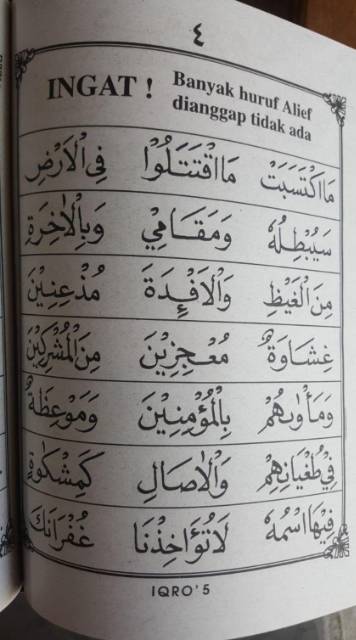 ٤
INGAT ! Banyak huruf Alief
dianggap tidak ada
مَااكْتَسَبَتْ مَااقْتَتَلُوْا فِى الْاَرْضِ
سَيُبْطِلُهُ وَمَقَامِيْ وَبِالْاٰخِرَةِ
مِنَ الْغَيْظِ وَالْاَفْئِدَةَ مُذْعِنِيْنَ
غِشَاوَةٌ مُعْجِزِيْنَ مِنَ الْمُشْرِكِيْنَ
وَمَأْوٰىهُمْ بِالْمُؤْمِنِيْنَ وَمَوْعِظَةٌ
فِيْ طُغْيَانِهِمْ وَالْاٰصَالِ كَمِشْكٰوةٍ
فِيْهَااسْمُهُ لَاتُؤَاخِذْنَا غُفْرَانَكَ
IQRO'5